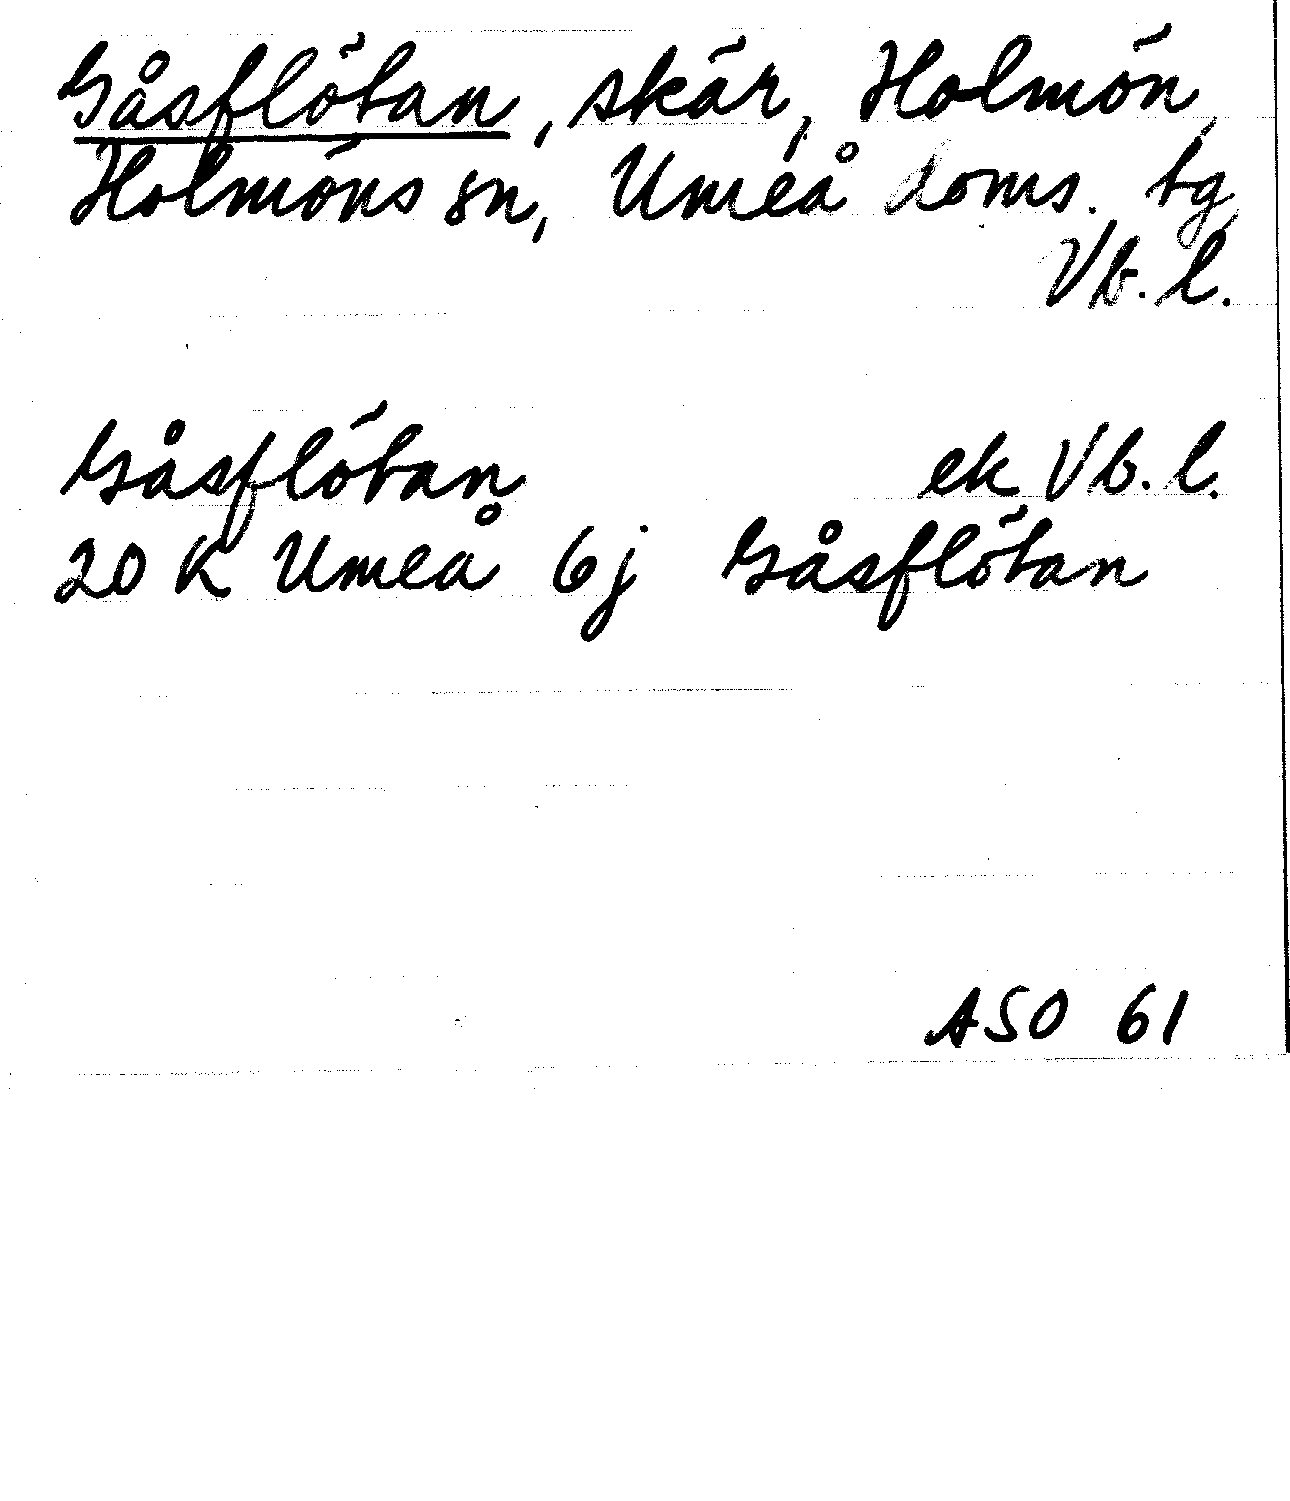 Gåsflötan, skär, Holmön,
Holmöns sn, Umeå doms. tg,
Vb. l.
Gåsflötan ek Vb. l.
20 K Umeå 6j Gåsflötan
ASO 61